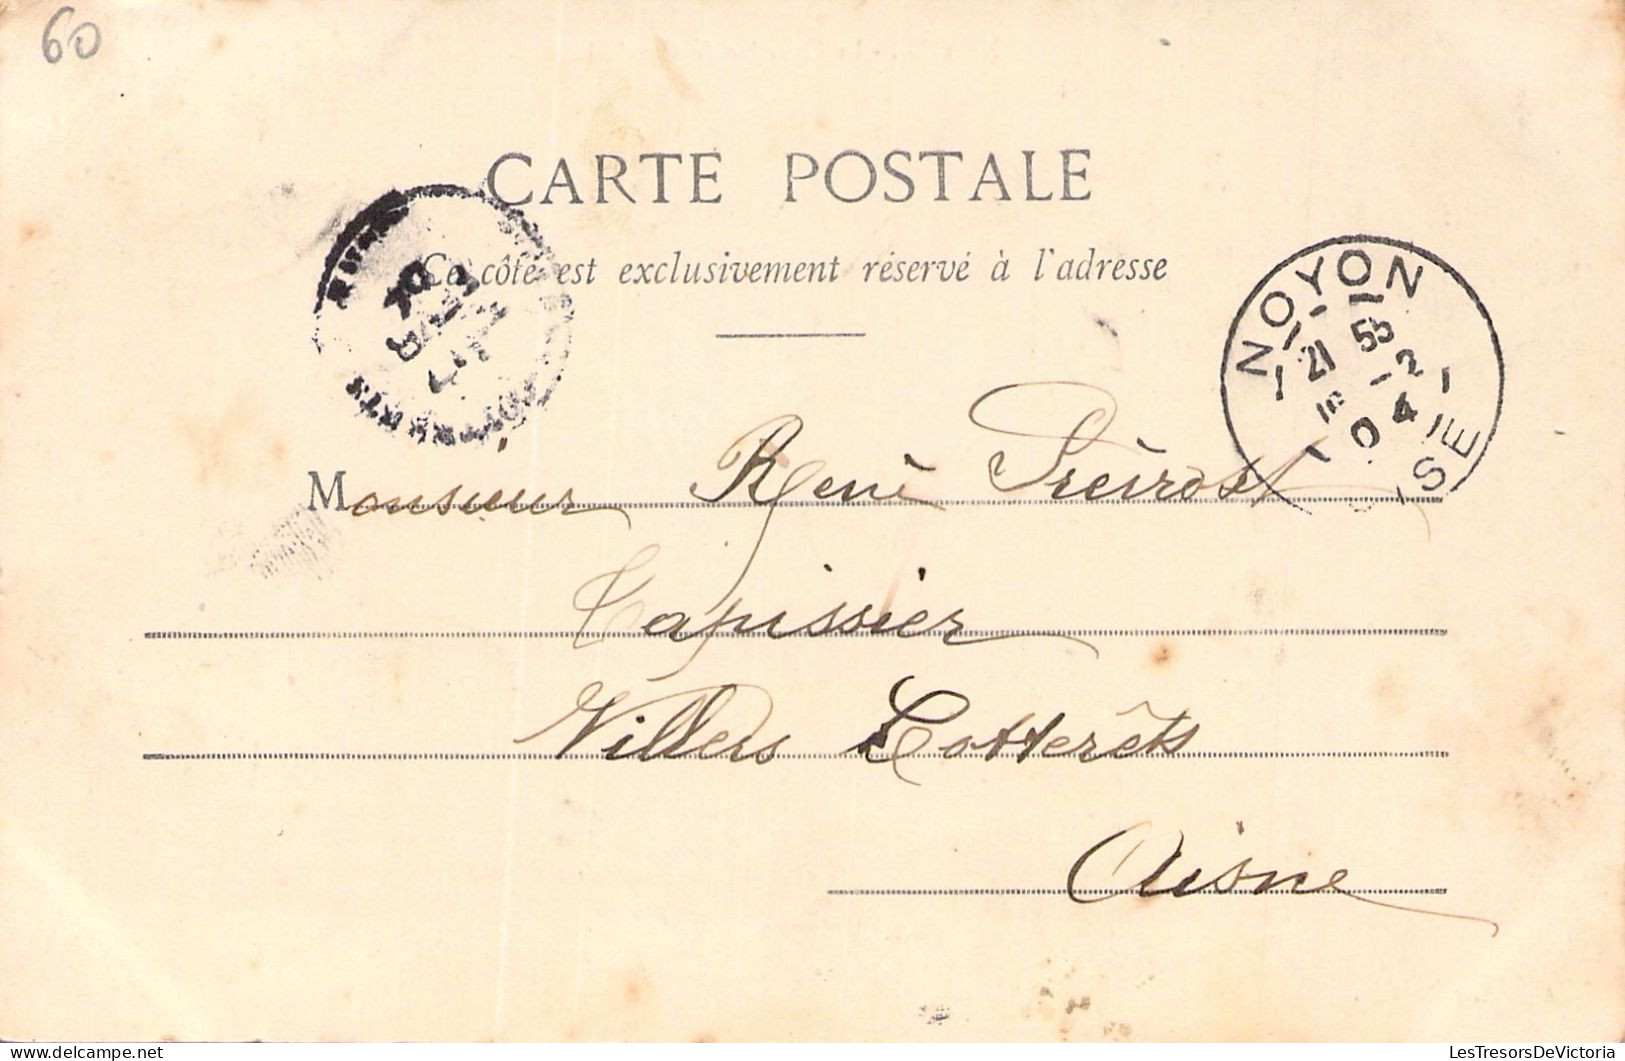 60
CARTE POSTALE
Ce côté est exclusivement réservé à l'adresse
NOYON
21 55
-2
04
OISE
Monsieur René Prévost
Tapissier
Villers Cotterêts
Aisne
LesTresorsDeVictoria